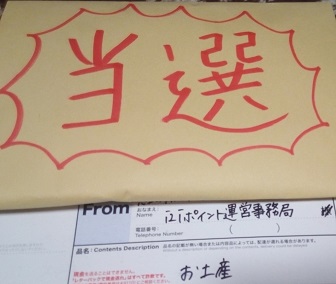 当選
From
おなまえ
Name
i2iポイント運営事務局 様
電話番号:
Telephone Number
( )
品名: Contents Description
お土産